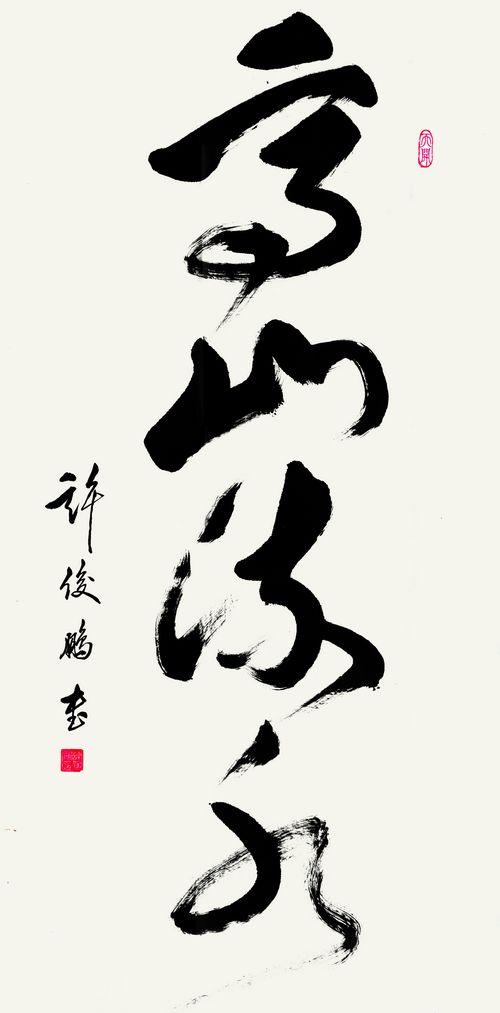 高山流水
許俊鵬書